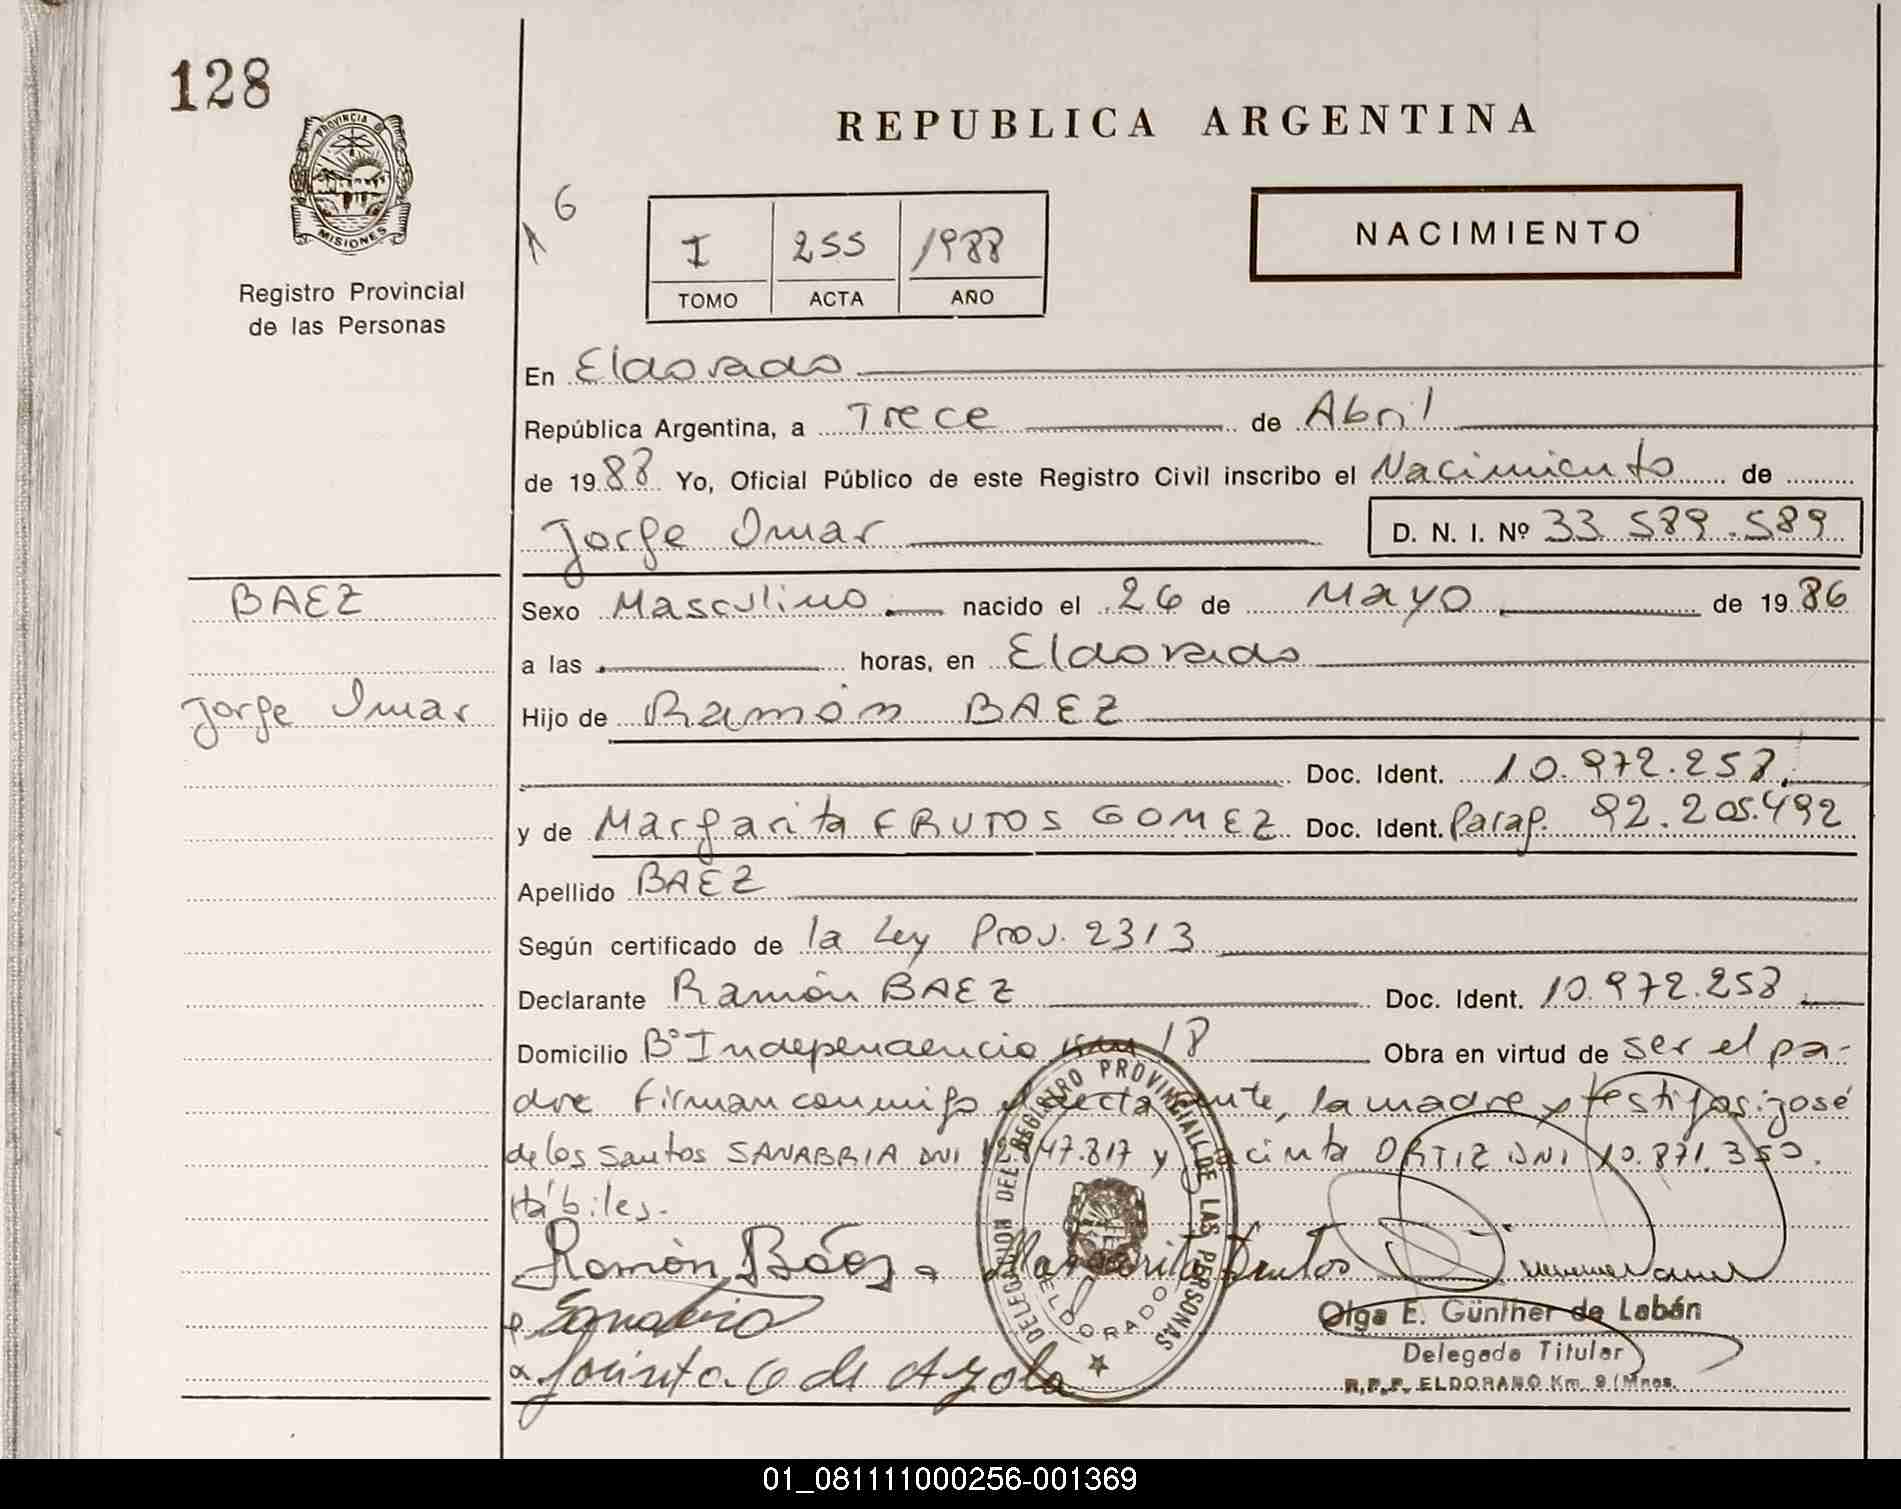 128
PROVINCIA DE
MISIONES
Registro Provincial
de las Personas
REPUBLICA ARGENTINA
6
I 255 1988
TOMO ACTA AÑO
NACIMIENTO
En Eldorado
República Argentina, a Trece de Abril
de 1988 Yo, Oficial Público de este Registro Civil inscribo el Nacimiento de
Jorge Omar D. N. I. Nº 33.589.589
BAEZ
Jorge Omar
Sexo Masculino nacido el 26 de Mayo de 1986
a las horas, en Eldorado
Hijo de Ramón BAEZ
Doc. Ident. 10.972.258
y de Margarita FRUTOS GOMEZ Doc. Ident. Parag. 92.205.492
Apellido BAEZ
Según certificado de la Ley Prov. 2313
Declarante Ramón BAEZ Doc. Ident. 10.972.258
Domicilio Bº Independencia km 18 Obra en virtud de ser el pa-
dre Firman conmigo el declarante, la madre y testigos: josé
de los Santos SANABRIA DNI y Jacinta ORTIZ DNI 10.871.350.
Hábiles.
Ramón Báez Margarita Frutos
Sanabria
Jacinta O de Ayala
DELEGACION DEL REGISTRO PROVINCIAL DE LAS PERSONAS
ELDORADO
Olga E. Günther de Labán
Delegada Titular
R.P.P. ELDORADO Km. 9 (Mnes.
01_081111000256-001369